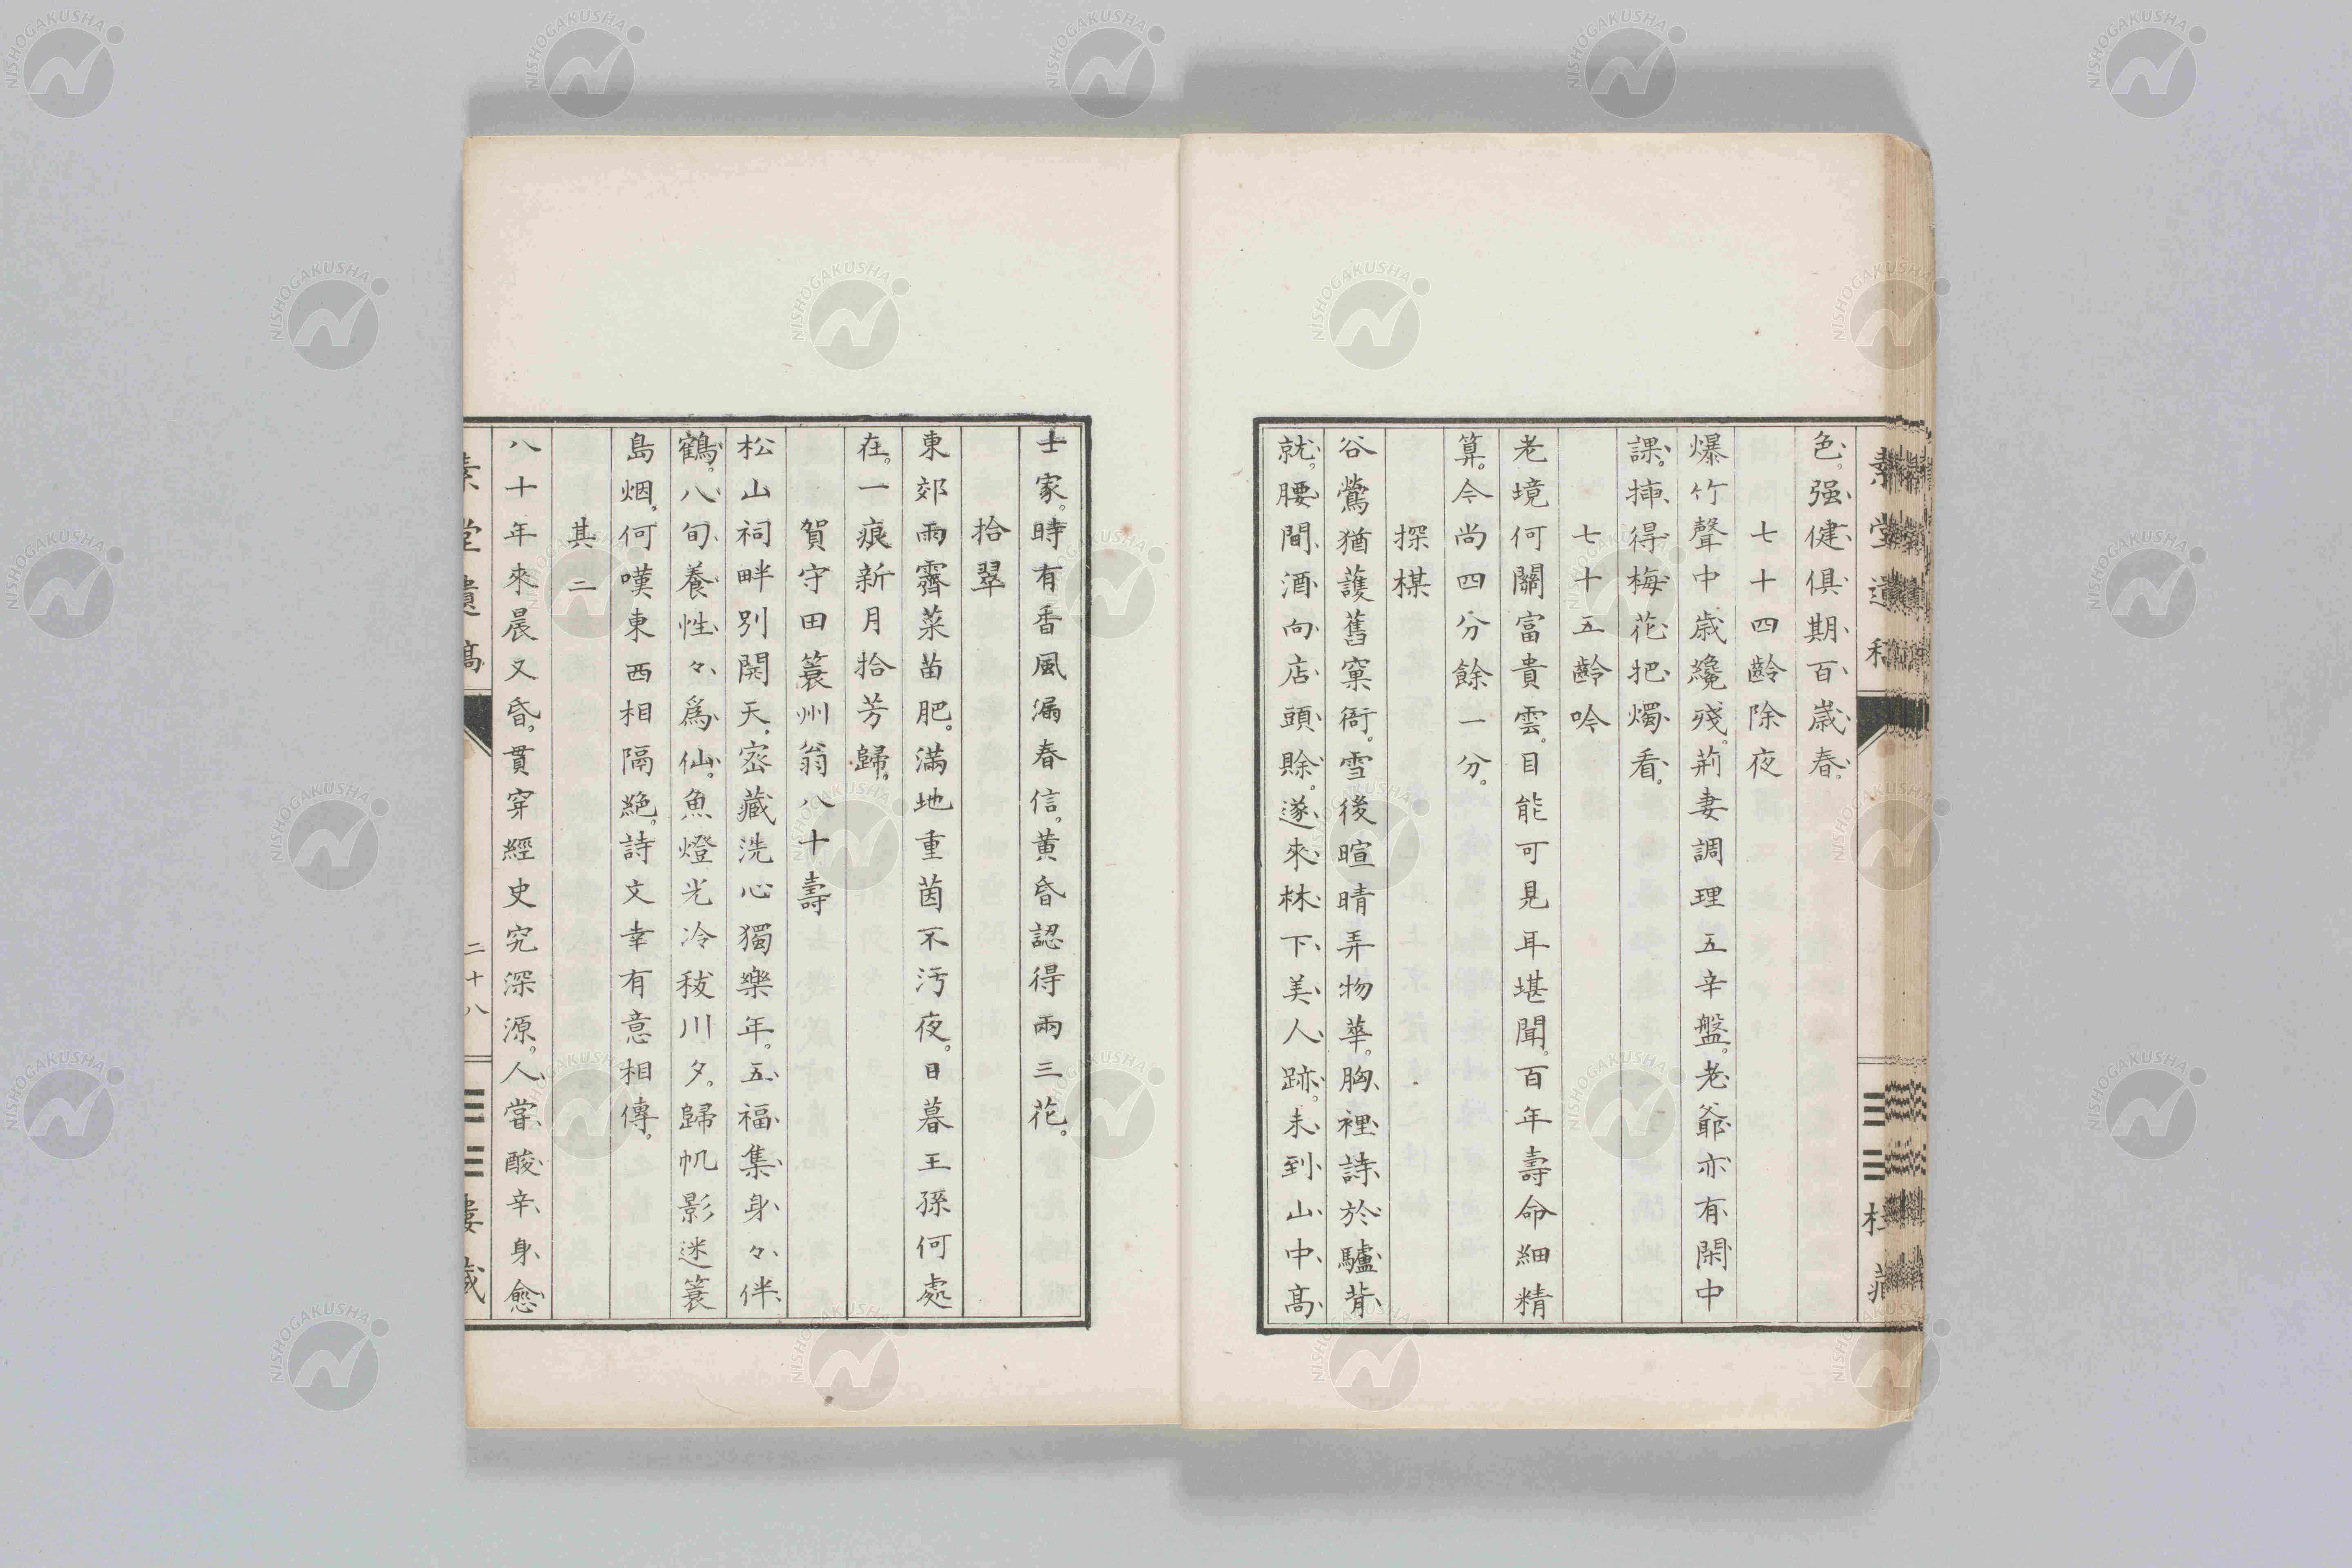 色。强健俱期百歳春。
七十四齡除夜
爆竹聲中歳纔殘。荊妻調理五辛盤。老爺亦有閑中
課。挿得梅花把燭看。
七十五齡吟
老境何關富貴雲。目能可見耳堪聞。百年壽命細精
算。今尚四分餘一分。
探楳
谷鶯猶護舊窠衙。雪後暄晴弄物華。胸裡詩於驢背
就。腰間酒向店頭賖。遂來林下美人跡。未到山中高
士家。時有香風漏春信。黄昏認得兩三花。
拾翠
東郊雨霽菜苗肥。滿地重茵不汚夜。日暮王孫何處
在。一痕新月拾芳歸。
賀守田蓑州翁八十壽
松山祠畔別開天。宻藏洗心獨樂年。五福集身々伴
鶴。八旬養性々爲仙。魚燈光冷秡川夕。歸帆影迷蓑
島烟。何嘆東西相隔絶。詩文幸有意相傳。
其二
八十年來晨又昏。貫穿經史究深源。人當酸辛身愈
素堂遺稿
二十八